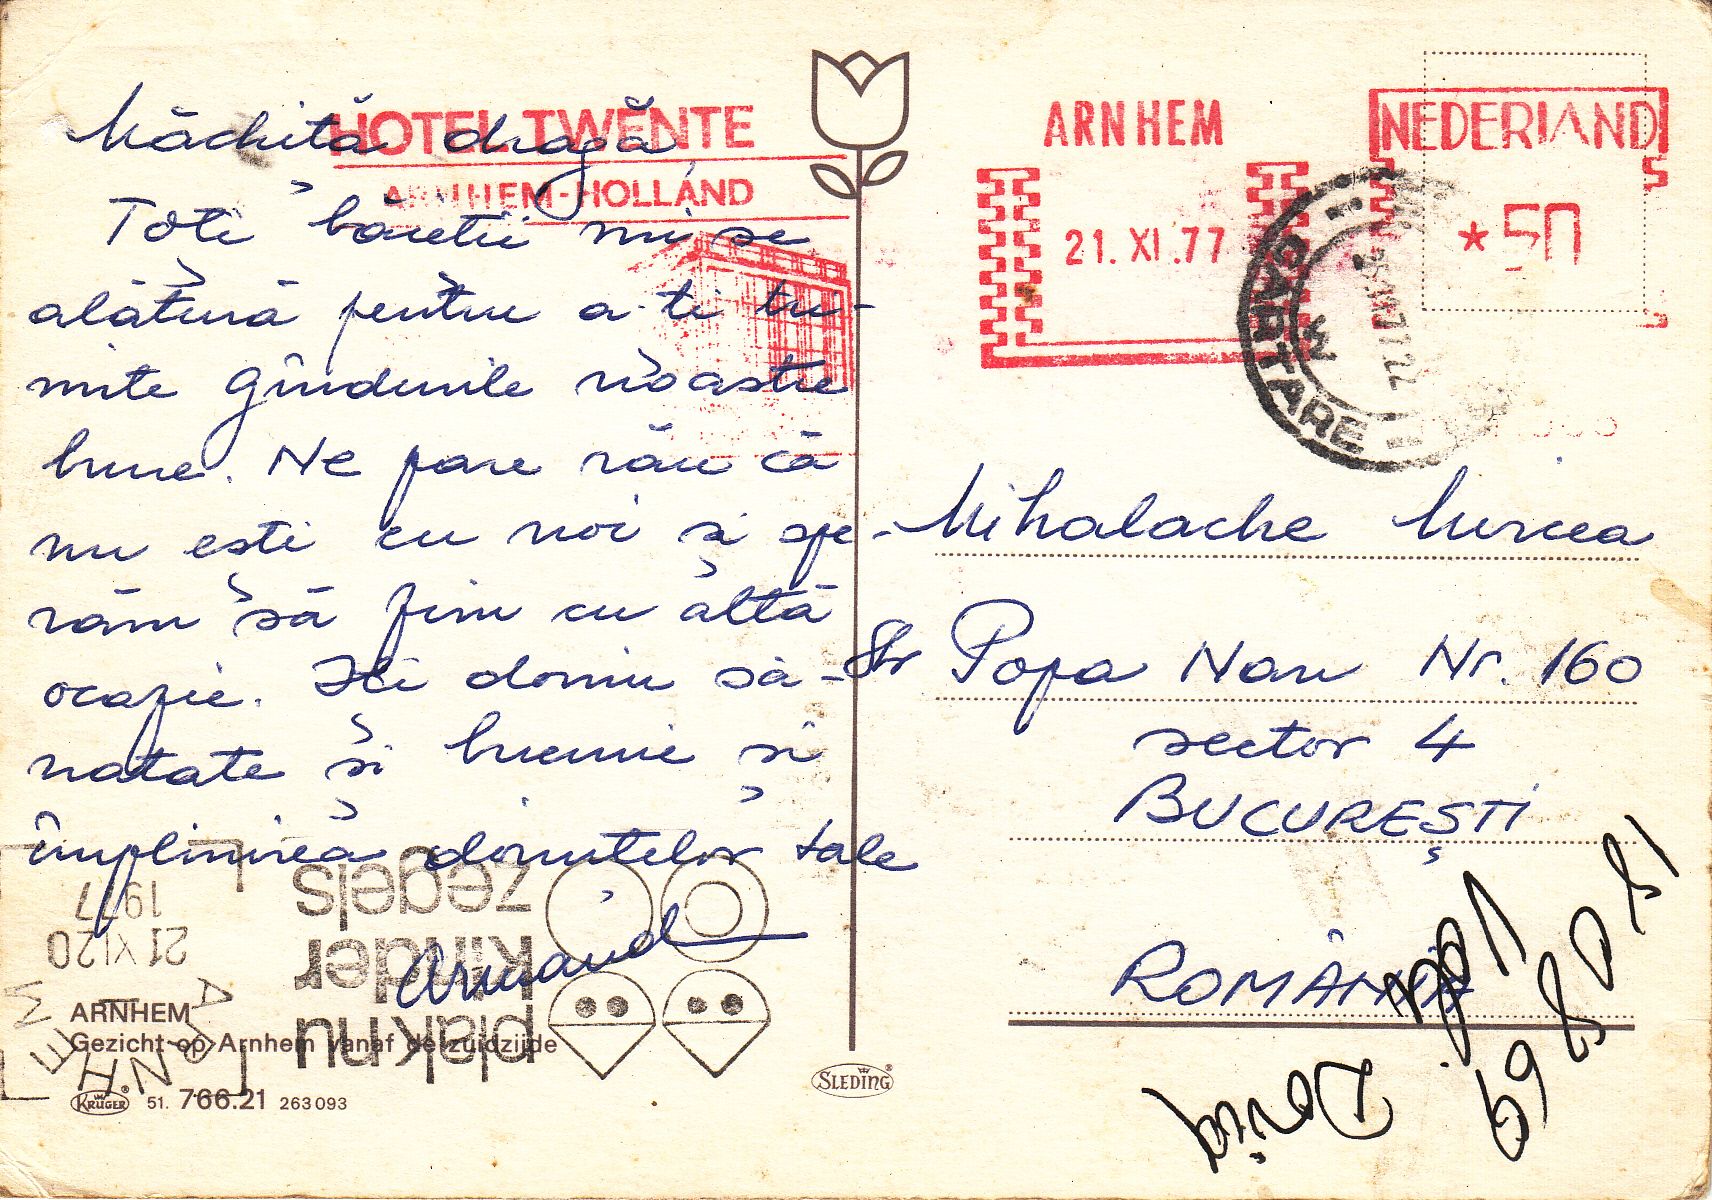 Măchiță dragă,
Toți băieții mi se
alătură pentru a-ți tri-
mite gîndurile noastre
bune. Ne pare rău că
nu ești cu noi și spe-
răm să fim cu altă
ocazie. Îți dorim să-
nătate și bucurie și
împlinirea dorințelor tale
Armand
HOTEL TWENTE
ARNHEM-HOLLAND
ARNHEM
21. XI. 77
NEDERLAND
*50
CARTARE
Mihalache Mircea
Str Popa Nan Nr. 160
sector 4
BUCUREȘTI
ROMÂNIA
Doina
plak nu
kinder
zegels
ARNHEM
21 XI 20
1977
ARNHEM
Gezicht op Arnhem vanaf de zuidzijde
KRÜGER 51. 766.21 263093
SLEDING